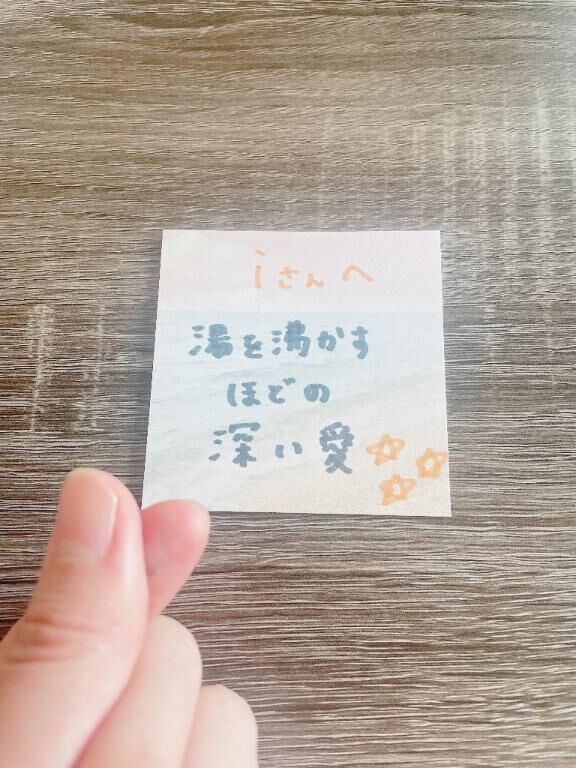 iさんへ
湯を沸かす
ほどの
深い愛